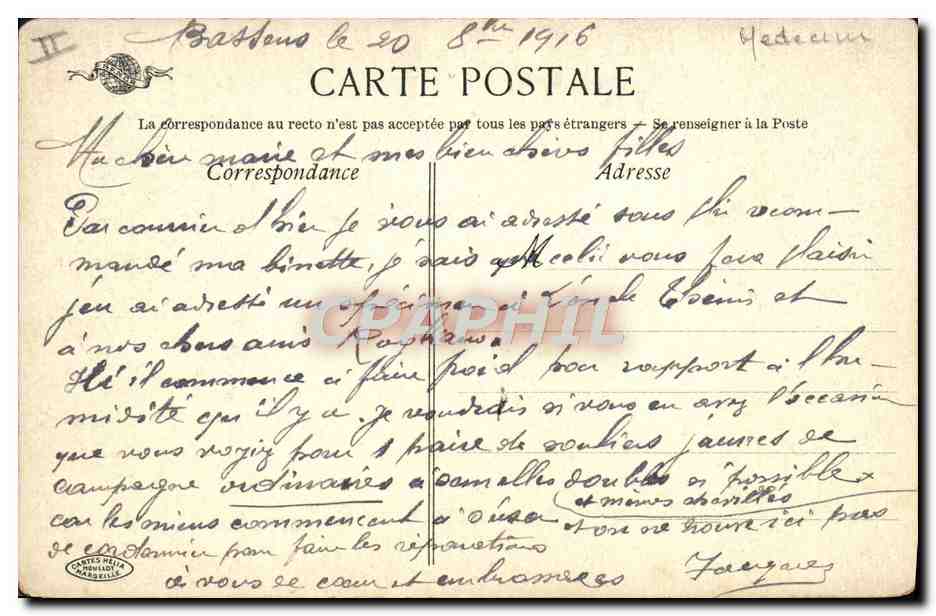 II
Bassens le 20 8bre 1916
CARTE POSTALE
La correspondance au recto n'est pas acceptée par tous les pays étrangers — Se renseigner à la Poste
Ma chère marie et mes bien chères filles
Correspondance
Adresse
Par courrier d'hier je vous ai adressé sous pli recom—
mandé ma binette, je sais que celà vous fera plaisir
j'en ai adressé un spécimen à Denis et
à nos chers amis
Ici il commence à faire froid par rapport à l'hu—
midité qu'il y a. je voudrais si vous en avez l'occasion
que vous voyiez pour 1 paire de souliers jaunes de
campagne ordinaires à semelles doubles si possible x
et mêmes chevillés
car les miens commencent à s'user x on ne trouve ici pas
de cordonnier pour faire les réparations
à vous de cœur et embrassades Jacques
CARTES HELIA
MOULLOT
MARSEILLE
CPAPHIL